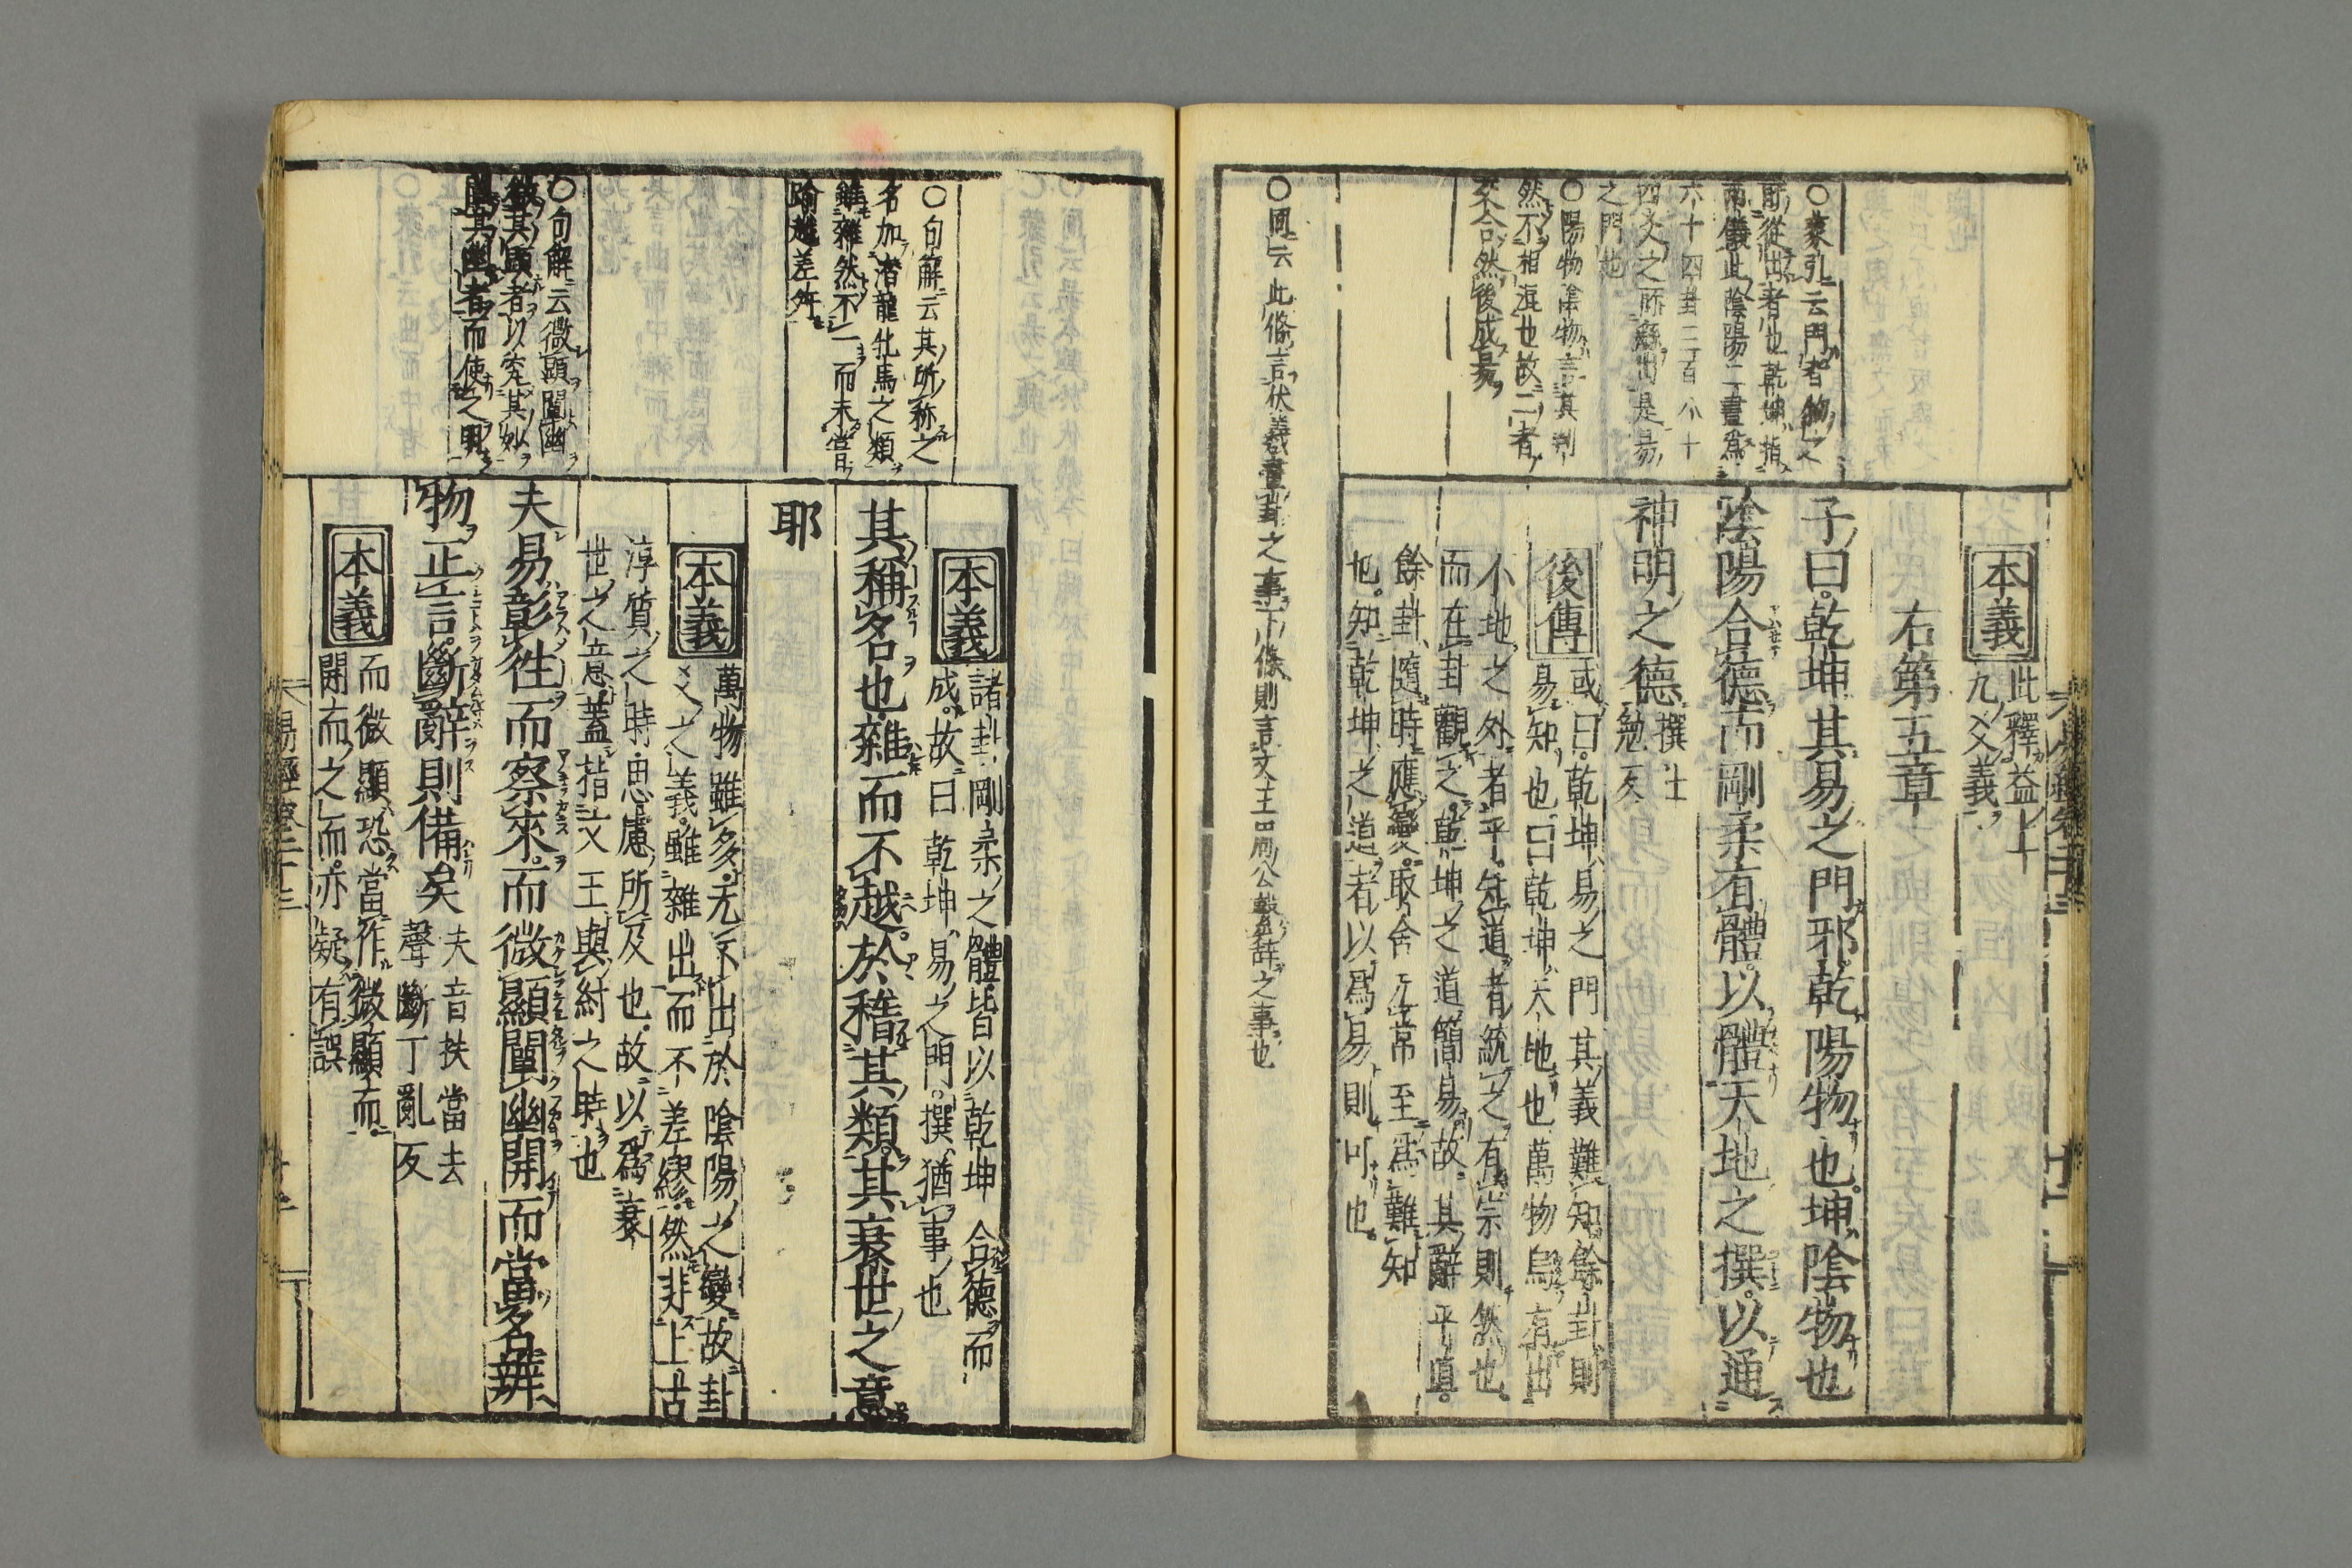 本義
此釋益上
九爻義
右第五章
子曰乾坤其易之門邪乾陽物也坤陰物也
陰陽合德而剛柔有體以體天地之撰以通
神明之德
撰士
勉反
後傳
或曰乾坤易之門其義難知餘卦則
易知也曰乾坤天地也萬物烏有出
小地之外者乎知道者統之有崇則然也
而在卦觀之乾坤之道簡易故其辭平直
餘卦隨時應變取舍无常至爲難知
也知乾坤之道者以爲易則可也
○蒙引云門者物之
所從出者也乾坤指
兩儀此陰陽二畫爲
六十四卦三百八十
四爻之所繇出是易
之門也
○陽物陰物言其判
然不相混也故二者
交合然後成易
○圓云此條言伏羲畫卦之事下條則言文王周公繫辭之事也
本義
諸卦剛柔之體皆以乾坤合德而
成故曰乾坤易之門撰猶事也
其稱名也雜而不越於稽其類其衰世之意
耶
本義
萬物雖多无不出於陰陽之變故卦
爻之義雖雜出而不差繆然非上古
淳質之時思慮所及也故以爲衰
世之意蓋指文王與紂之時也
夫易彰往而察來而微顯闡幽開而當名辨
物正言斷辭則備矣
夫音扶當去
聲斷丁亂反
本義
而微顯恐當作微顯而
開而之而亦疑有誤
○句解云其所称之
名加潛龍牝馬之類
雖雜然不一而未嘗
踰越差舛
○句解云微顯闡幽
微其顕者以究其妙
闡其幽者而使之明
易經卷二十三